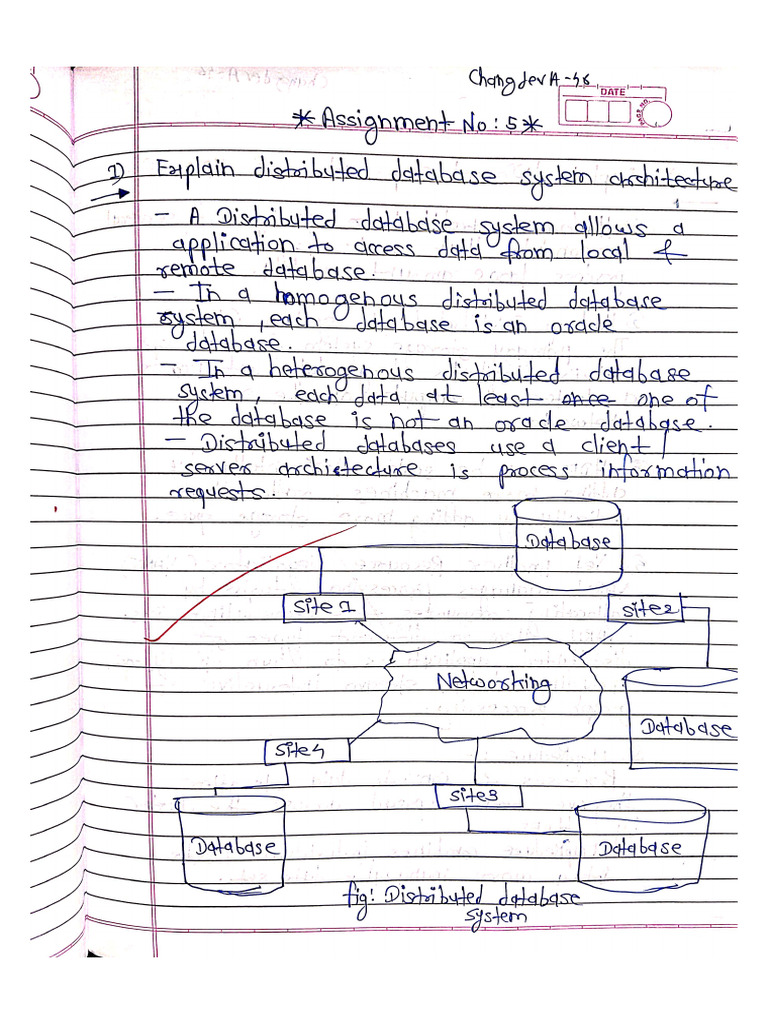 Changdev A-48
DATE
PAGE NO.
* Assignment No: 5 *
1) Explain distributed database system architecture
- A Distributed database system allows a
application to access data from local &
remote database.
- In a homogenous distributed database
system, each database is an oracle
database.
- In a heterogenous distributed database
system, each data at least once one of
the database is not an oracle database.
- Distributed databases use a client /
server archistecture is process information
requests.
Database
Site 1
Site2
Networking
Database
Site4
Site3
Database
Database
fig: Distributed database
system